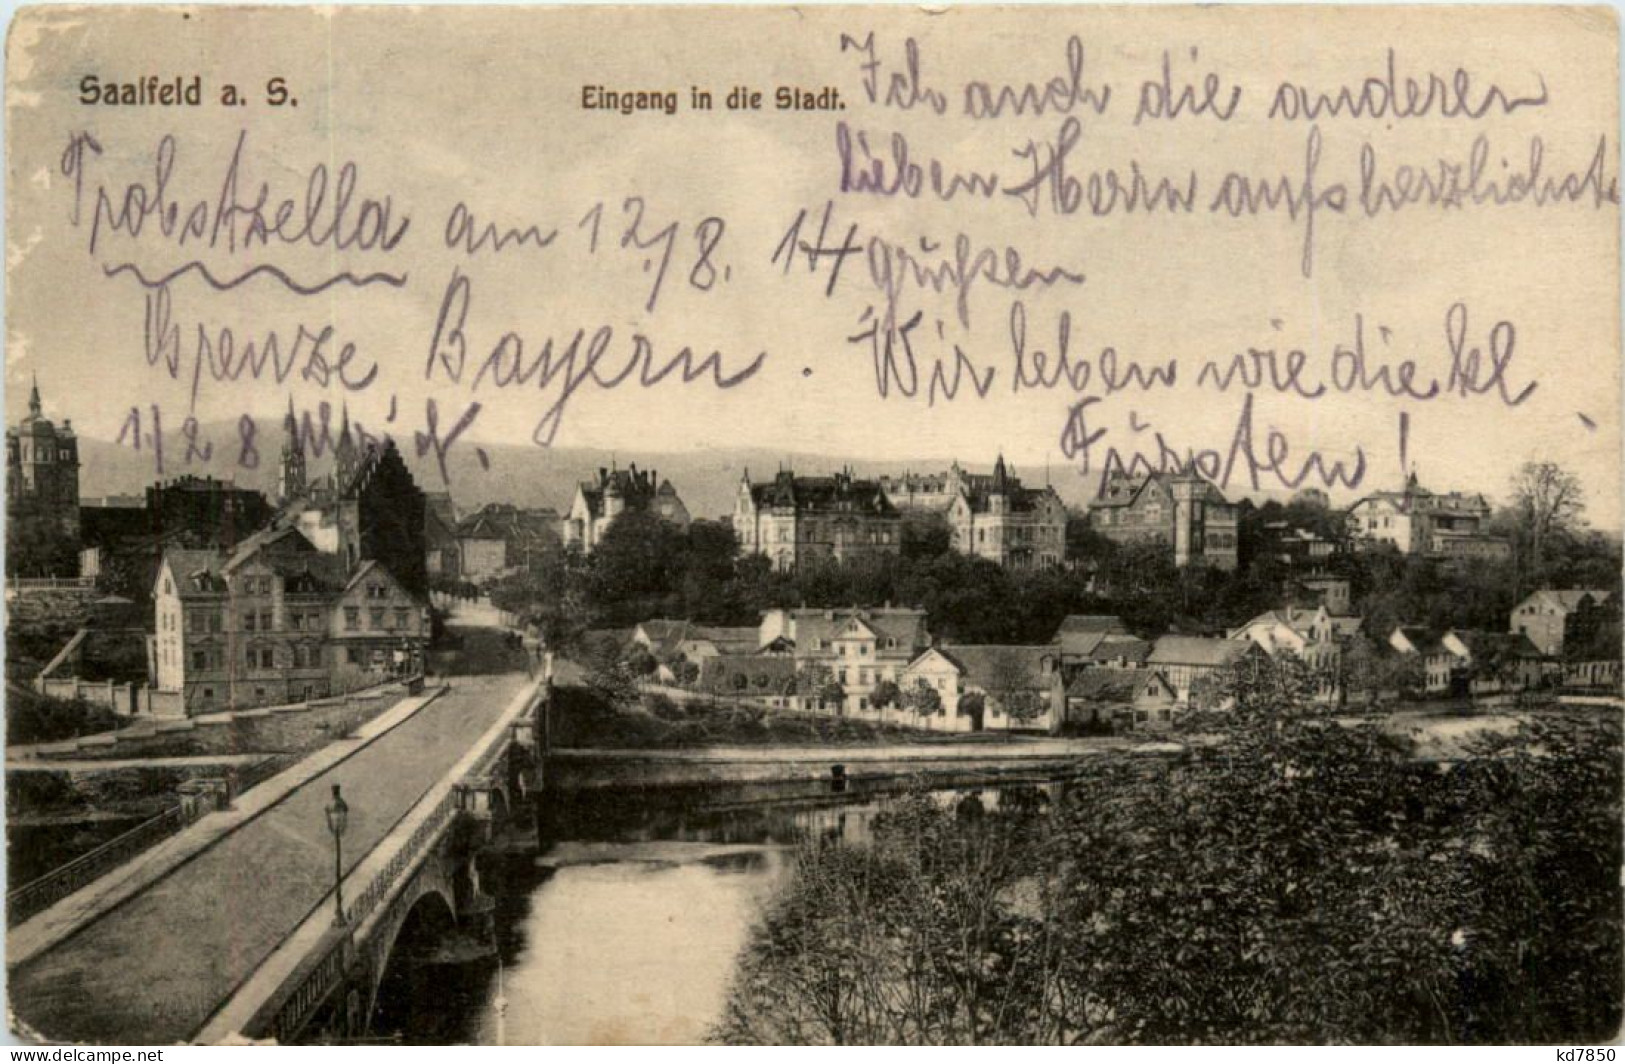 Saalfeld a. S.
Eingang in die Stadt.
Ich auch die anderen
lieben Herrn aufs herzlichste
grüßen
Wir leben wie die kl
Fürsten!
Probstzella am 12./8. 14
Grenze Bayern.
1/2 8
delcampe.net
kd7850